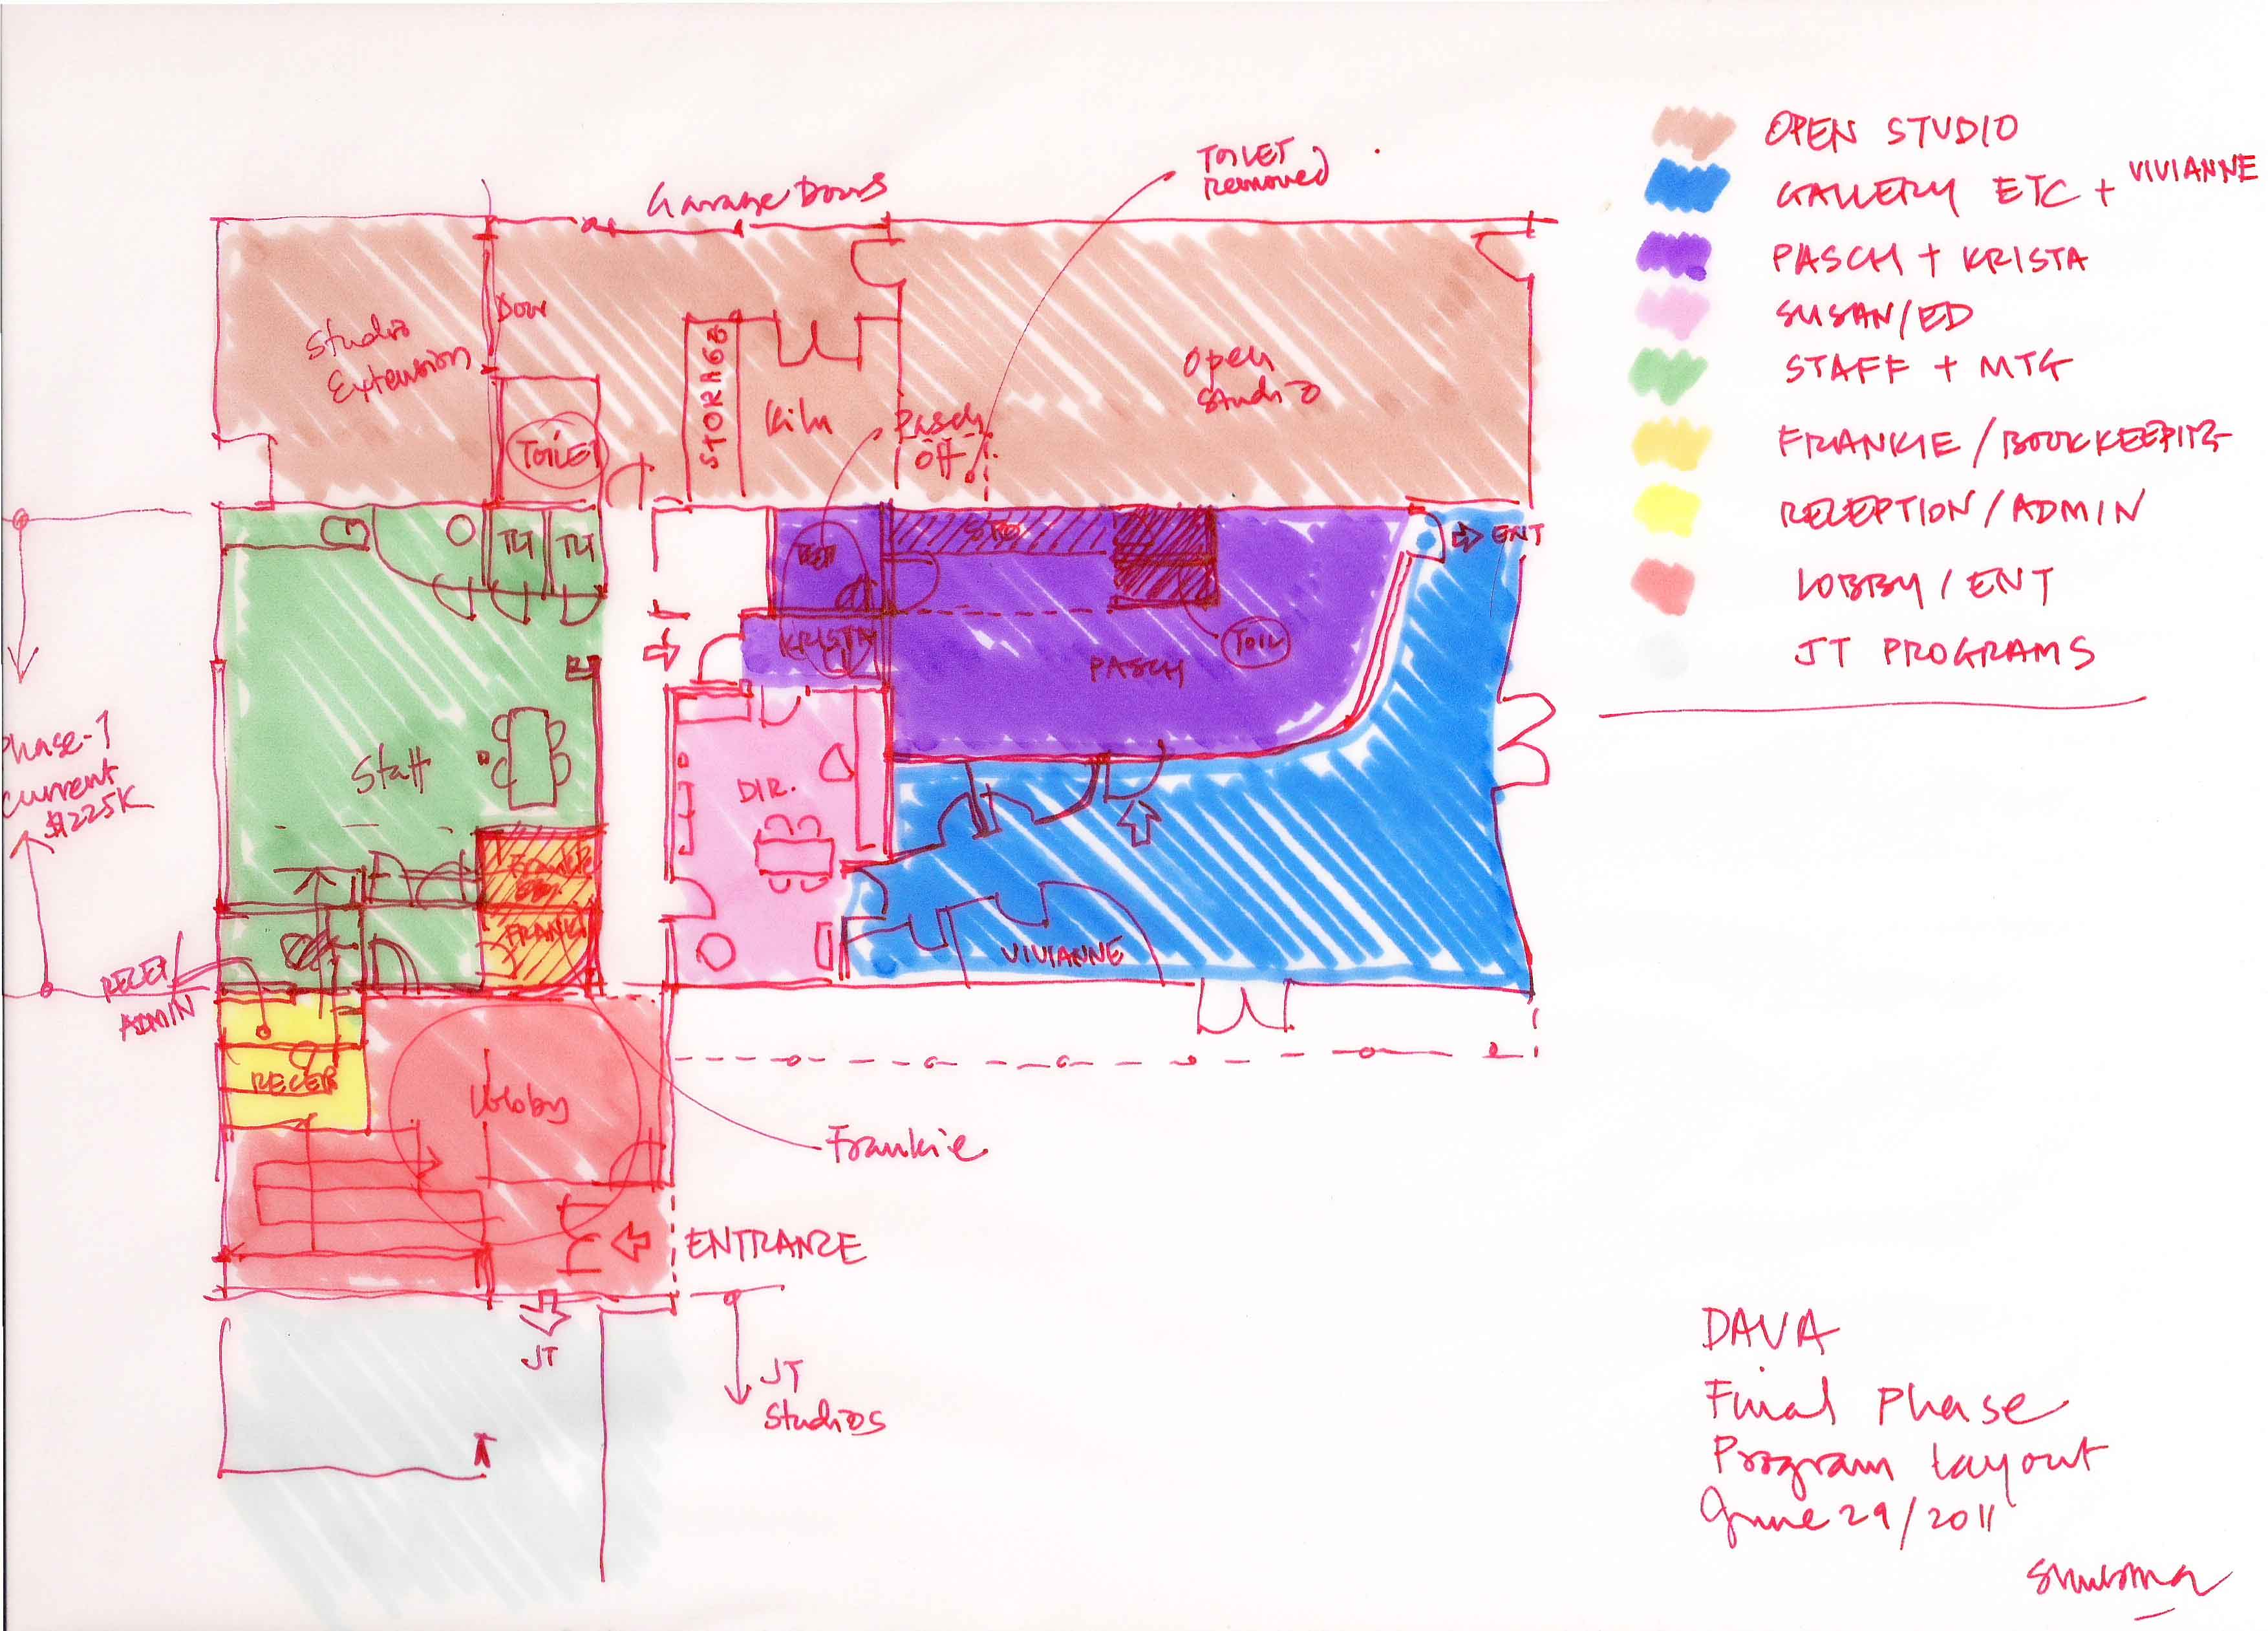 Garage Doors
TOILET
removed
OPEN STUDIO
GALLERY ETC + VIVIANNE
PASCH + KRISTA
SUSAN/ED
STAFF + MTG
FRANKIE / BOOKKEEPING
RECEPTION/ADMIN
LOBBY / ENT
JT PROGRAMS
Studio
Extension
Door
TOILET
STORAGE
Kiln
Pasch
Off
Open
Studio
TLT
TLT
STO
ENT
KRISTA
PASCH
TOIL
Phase-1
current
$225K
Staff
DIR.
FRANKIE
FRANKI
VIVIANNE
RECEP/
ADMIN
RECEP
Lobby
Frankie
ENTRANCE
JT
JT
Studios
DAVA
Final Phase
Program Layout
June 29/2011